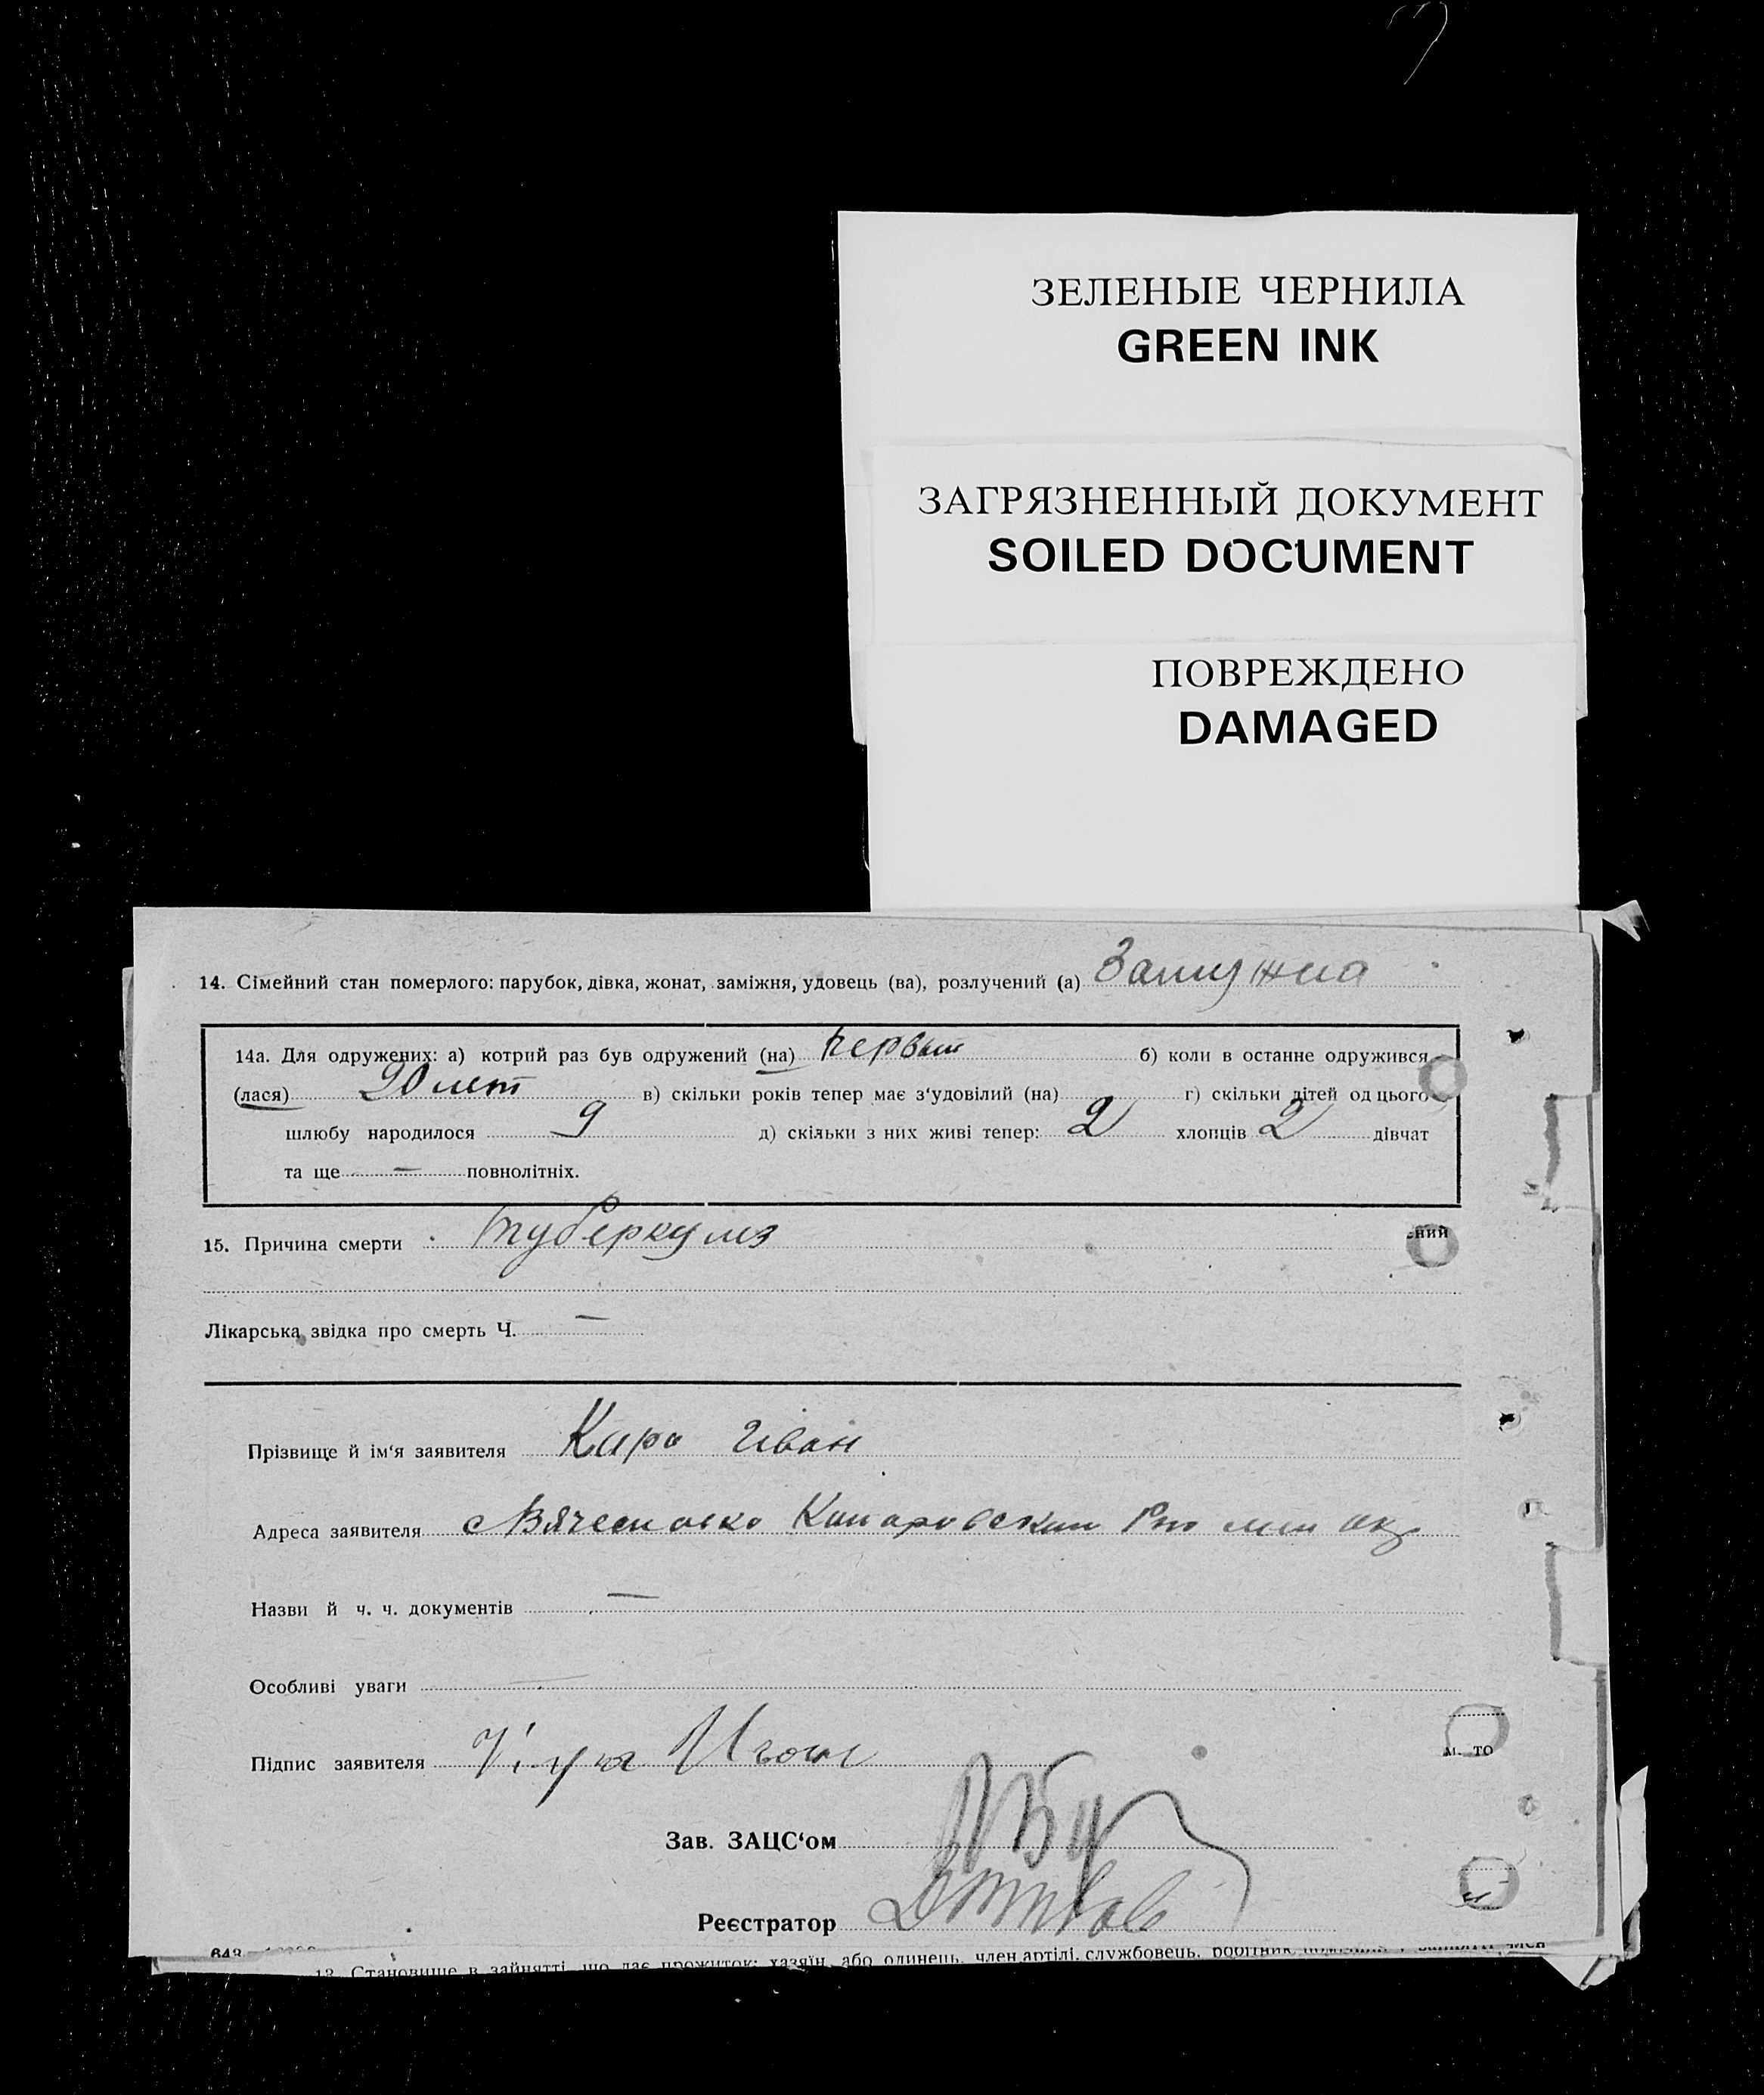 ЗЕЛЕНЫЕ ЧЕРНИЛА
GREEN INK
ЗАГРЯЗНЕННЫЙ ДОКУМЕНТ
SOILED DOCUMENT
ПОВРЕЖДЕНО
DAMAGED
14. Сімейний стан померлого: парубок, дівка, жонат, заміжня, удовець (ва), розлучений (а) Замужна
14а. Для одружених: а) котрий раз був одружений (на) первый б) коли в останне одружився
(лася) 20 лет в) скільки років тепер має з‘удовілий (на) г) скільки дітей од цього
шлюбу народилося 9 д) скільки з них живі тепер: 2 хлопців 2 дівчат
та ще — повнолітніх.
15. Причина смерти туберкулз
ений
Лікарська звідка про смерть Ч. —
Прізвище й ім‘я заявителя Кара Иван
Адреса заявителя с
Назви й ч. ч. документів —
Особливі уваги —
Підпис заявителя
м. то
Зав. ЗАЦС‘ом
Реєстратор
643
13. Становище в зайнятті, що дає прожиток: хазяїн, або одинець, член артілі, службовець, робітник